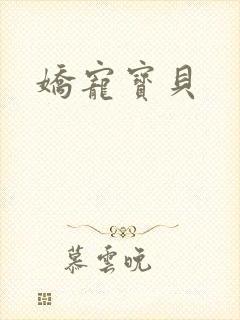 嬌寵寶貝
慕雲晚